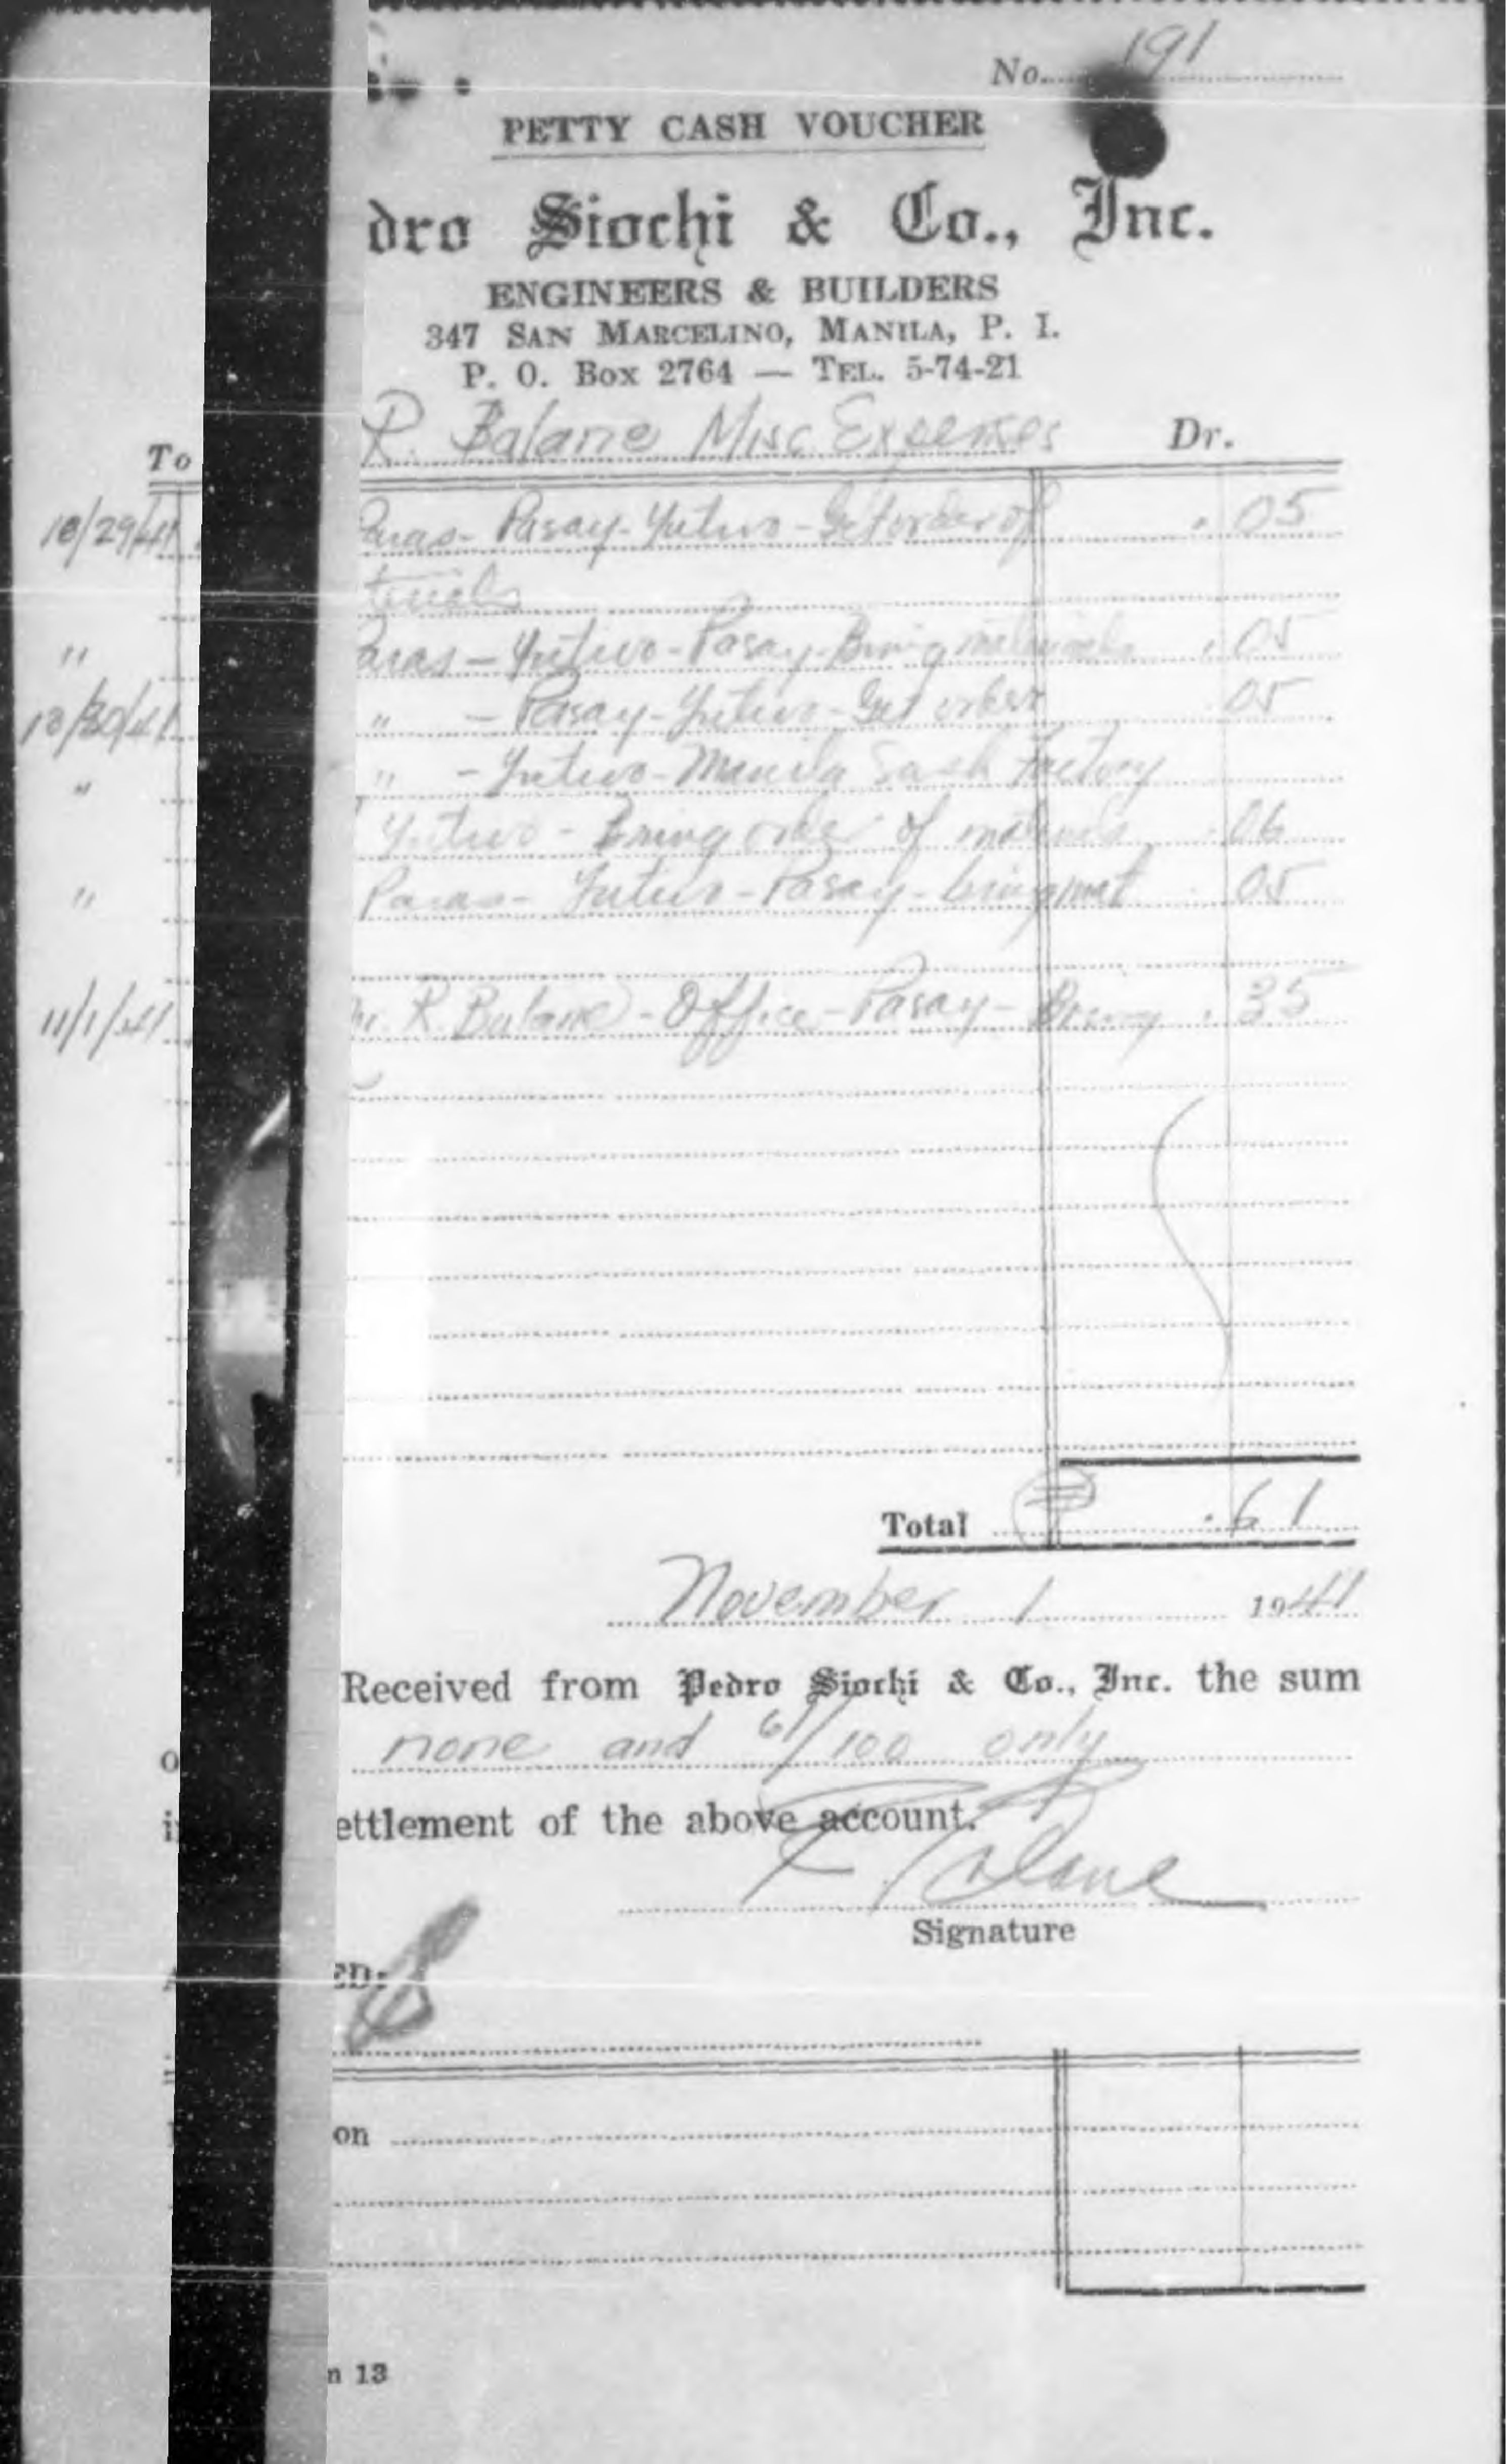 No. 191
PETTY CASH VOUCHER
dro Siochi & Co., Inc.
ENGINEERS & BUILDERS
347 SAN MARCELINO, MANILA, P. I.
P. O. Box 2764 — TEL. 5-74-21
To R. Balane Misc. Expenses Dr.
10/29/41 Paras - Pasay - Yutivo - Get order of .05
terials
" aras - Yutivo - Pasay - Bring materials .05
10/30/41 " - Pasay - Yutivo - Get order .05
" " - Yutivo - Manila Sash Factory
Yutivo - Bring order of materials .06
" Paras - Yutivo - Pasay - bring mat .05
11/1/41 R. Balane - Office - Pasay - .35
Total ₱ .61
November 1 1941
Received from Pedro Siochi & Co., Inc. the sum
o none and 61/100 only
i ettlement of the above account.
R. Balane
Signature
A ED:
on
m 13